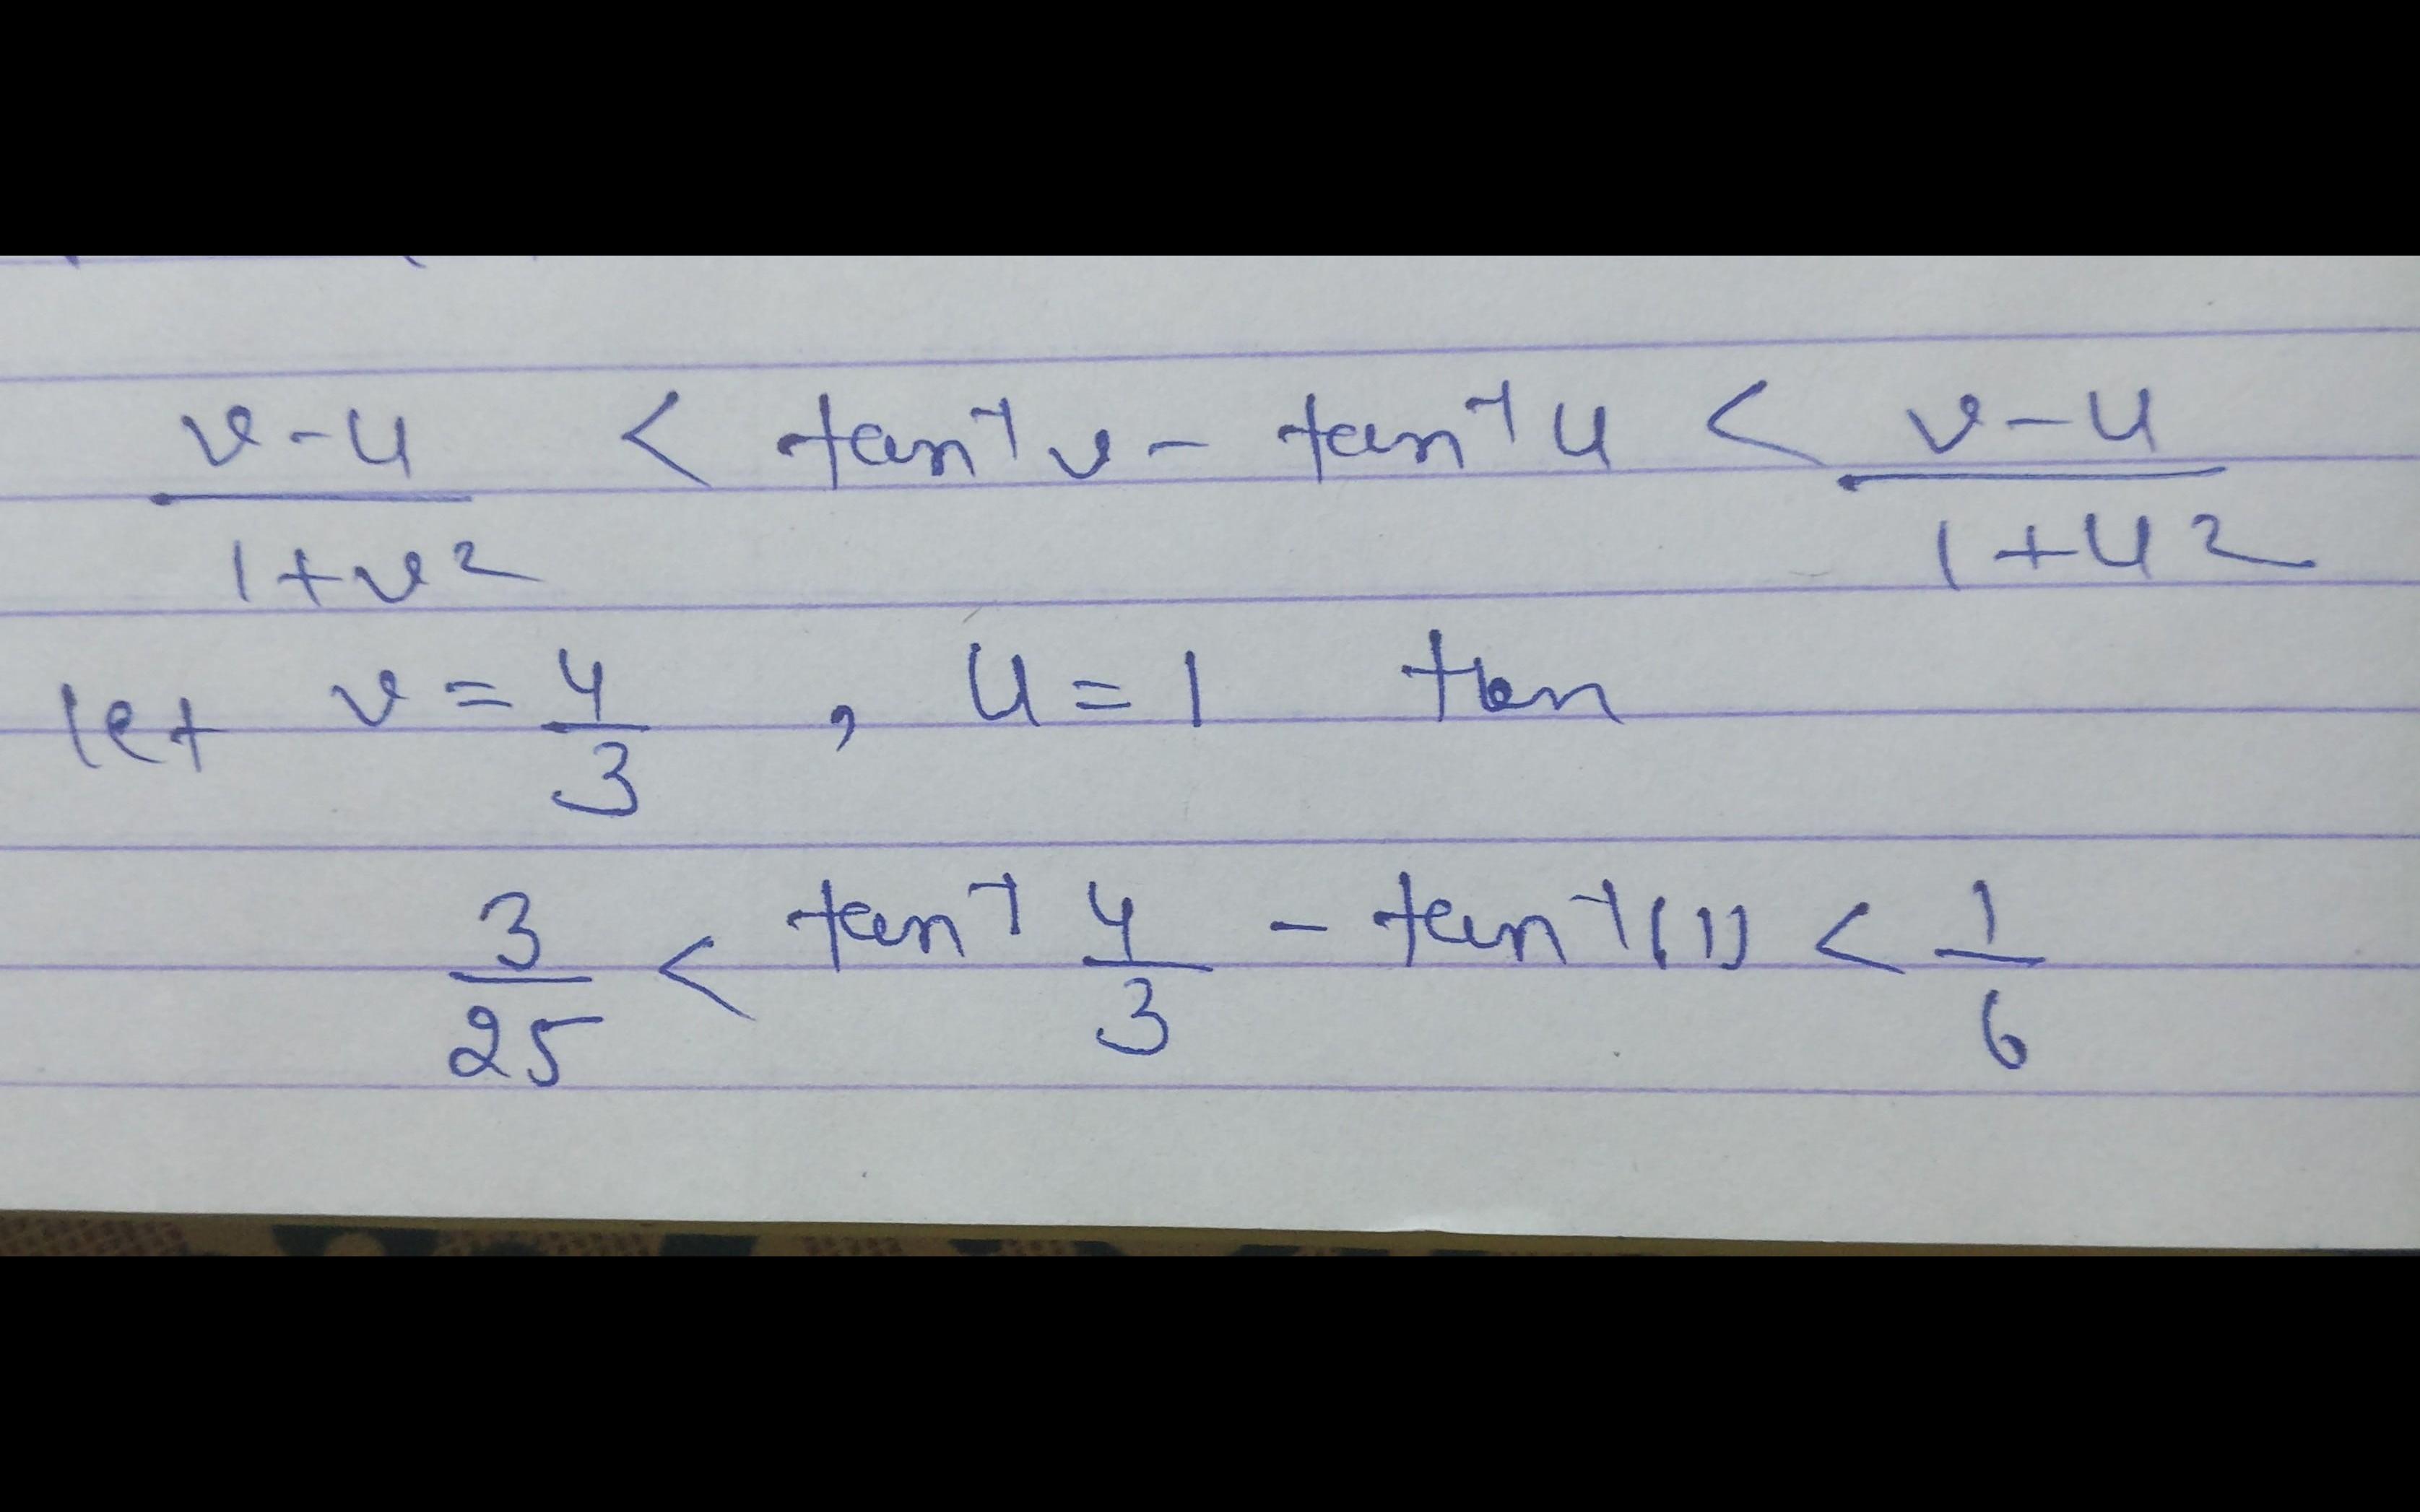 v-u/1+v² < tan⁻¹v - tan⁻¹u < v-u/1+u²
let v = 4/3 , u = 1 tan
3/25 < tan⁻¹ 4/3 - tan⁻¹(1) < 1/6